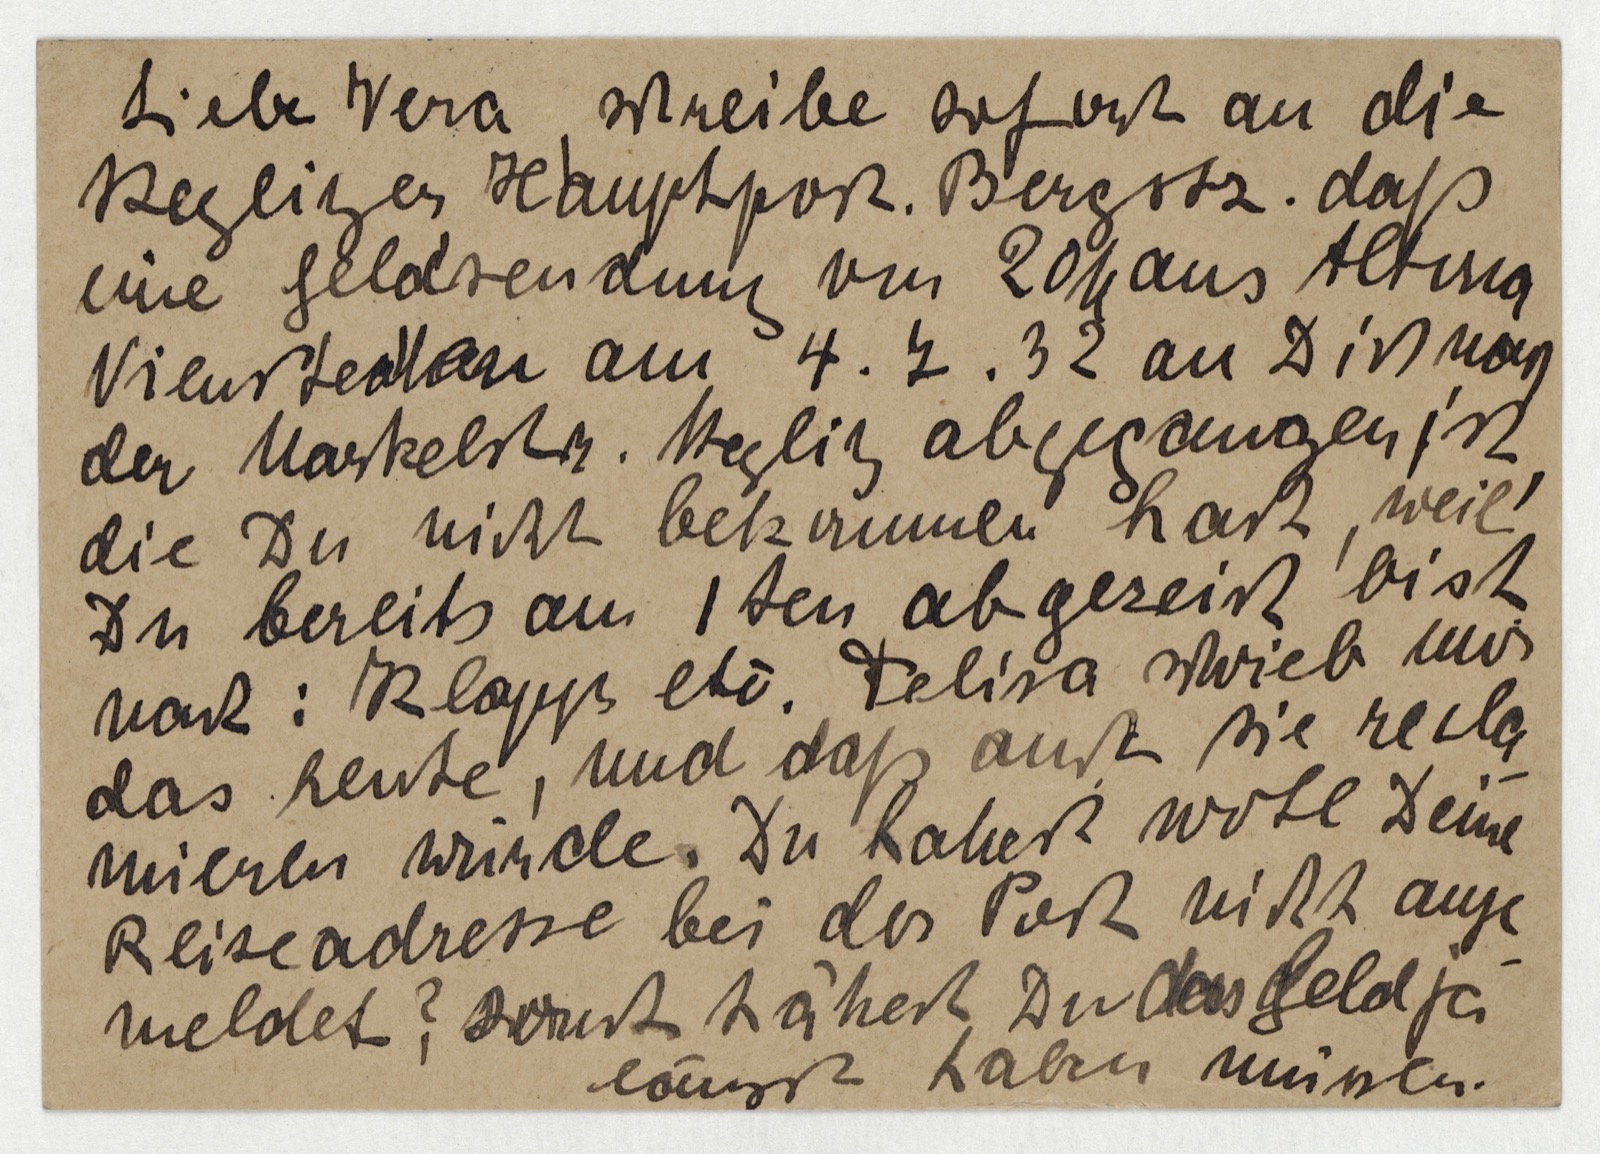 Liebe Vera, schreibe sofort an die
Steglitzer Hauptpost. Bergstr. daß
eine Geldsendung von 20 M aus Altona
Nienstedten am 4. 7. 32 an Dich nach
der Markelstr. Steglitz abgegangen ist,
die Du nicht bekommen hast, weil
Du bereits am 1ten abgereist bist
nach: Klapps etc. Felisa schrieb mir
das heute, und daß auch sie rekla
mieren würde. Du hahest wohl Deine
Reiseadresse bei der Post nicht ange
meldet? Sonst hähest Du das Geld ja
längst haben müssen.